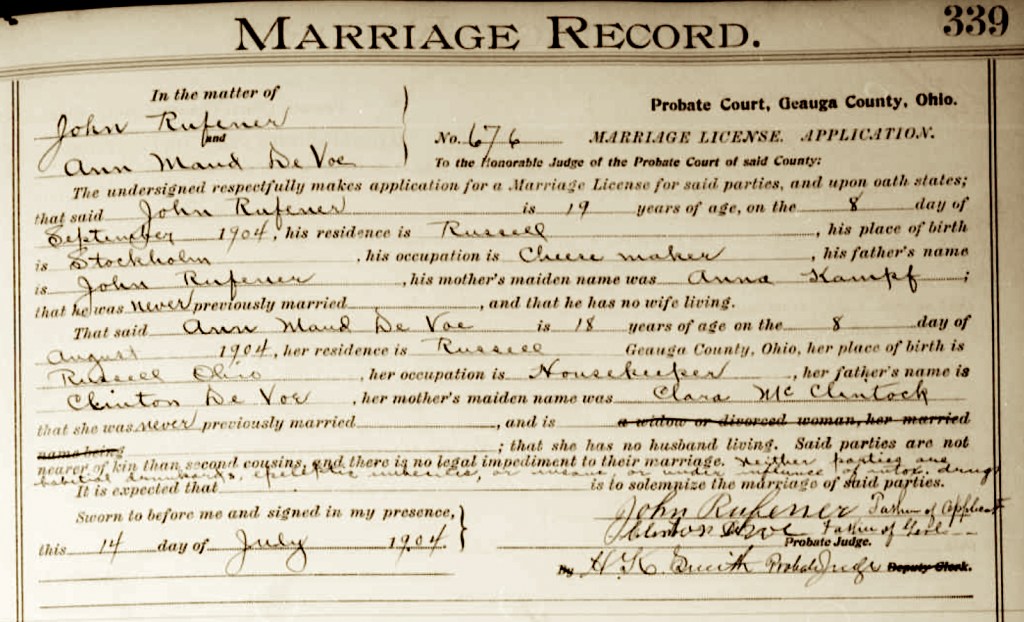 MARRIAGE RECORD.
339
In the matter of
John Rufener
and
Ann Maud De Voe
Probate Court, Geauga County, Ohio.
No. 676 MARRIAGE LICENSE. APPLICATION.
To the Honorable Judge of the Probate Court of said County:
The undersigned respectfully makes application for a Marriage License for said parties, and upon oath states;
that said John Rufener is 19 years of age, on the 8 day of
September 1904, his residence is Russell, his place of birth
is Stockholm, his occupation is Cheese maker, his father's name
is John Rufener, his mother's maiden name was Anna Kampf;
that he was never previously married, and that he has no wife living.
That said Ann Maud De Voe is 18 years of age on the 8 day of
August 1904, her residence is Russell Geauga County, Ohio, her place of birth is
Russell Ohio, her occupation is Housekeeper, her father's name is
Clinton De Voe, her mother's maiden name was Clara McClintock
that she was never previously married, and is a widow or divorced woman, her married
name being; that she has no husband living. Said parties are not
nearer of kin than second cousins, and there is no legal impediment to their marriage. Neither parties are
habitual drunkards, epileptic, insane, or under influence of intox. drugs
It is expected that is to solemnize the marriage of said parties.
John Rufener Father of Applicant
Sworn to before me and signed in my presence,
Clinton DeVoe Father of Girl
Probate Judge.
this 14 day of July 1904.
By H. K. Smith Probate Judge Deputy Clerk.